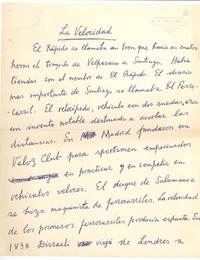 La Velocidad
El Rápido se llamaba un tren que hacía en cuatro
horas el trayecto de Valparaíso a Santiago. Había
tiendas con el nombre de El Rápido. El diario
más importante de Santiago se llamaba El Ferro-
carril. El velocípedo, vehículo con dos ruedas, era
un invento notable destinado a acortar las
distancias. En Madrid fundaron un
Veloz Club para sportsmen empeñados
en practicar y en competir en
vehículos veloces. El duque de Salamanca
se hizo maquinista de ferrocarriles. La velocidad
de los primeros ferrocarriles producía espanto. En
1838 Disraeli viajó de Londres a